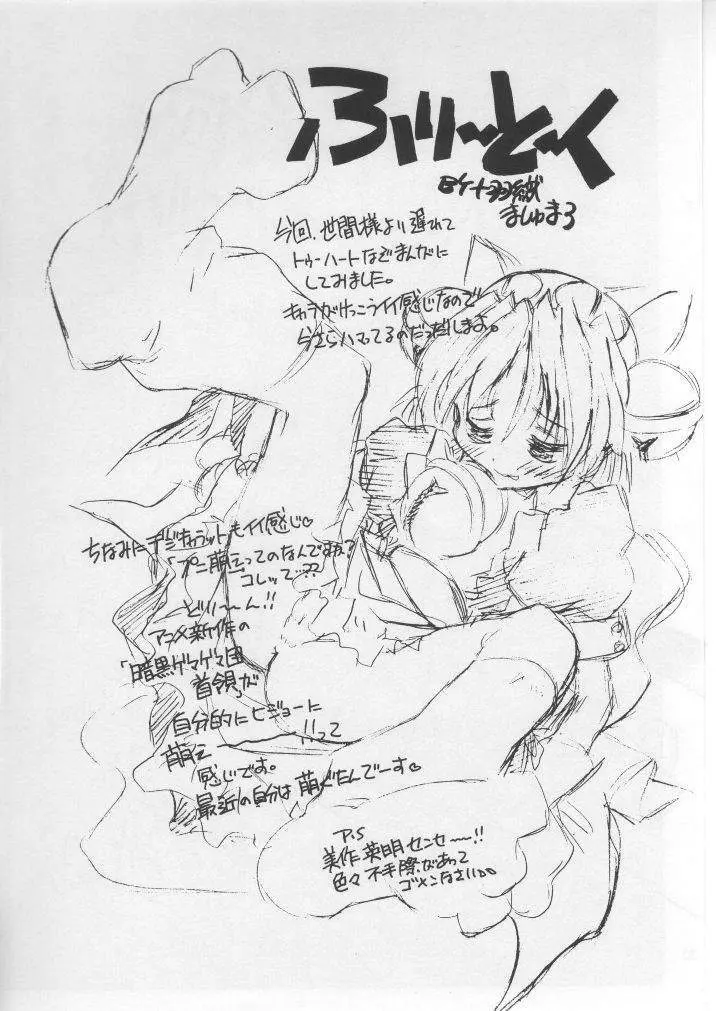 ふりーとーく
ロケット羽繊
ましゅまろ
今回、世間様より遅れて
トゥーハートなどまんがに
してみました。
キャラがけっこうイイ感じなので
今さらハマってるのだっだしまよ。
ちなみにデジキャラットもイイ感じ♡
「プニ萌えってのなんですな?
コレッて…??
どりーーん!!
アニメ新作の
「暗黒ゲマゲマ団
首領」が
自分的にヒジョーに
萌えーーー!!って
感じです。
最近の自分は萌ぐたんでーす♡
P.S
美作英明センセーー!!
色々不手際があって
ゴメンなさいDD